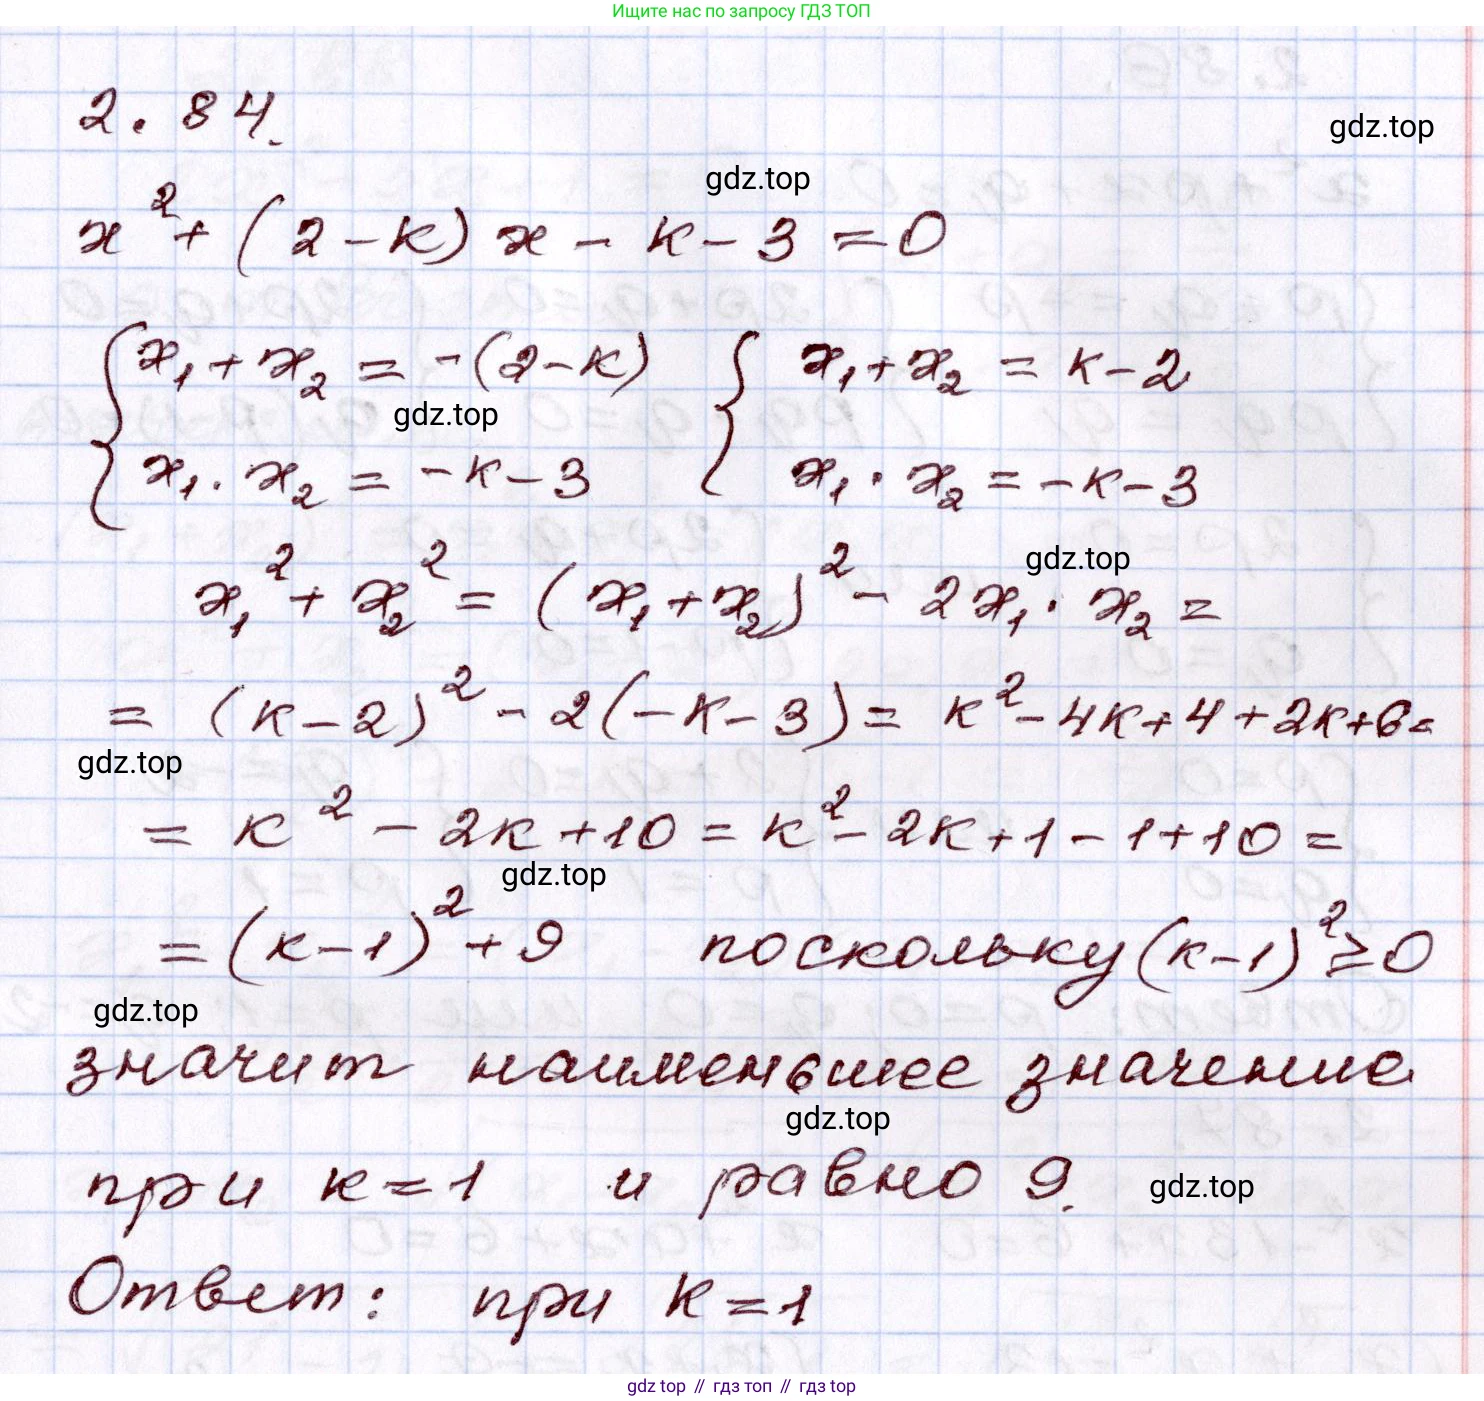 Ищите нас по запросу ГДЗ ТОП
2.84.
gdz.top
gdz.top
x² + (2 - k) x - k - 3 = 0
{ x₁ + x₂ = -(2 - k) { x₁ + x₂ = k - 2
gdz.top
x₁ · x₂ = -k - 3 x₁ · x₂ = -k - 3
gdz.top
x₁² + x₂² = (x₁ + x₂)² - 2x₁ · x₂ =
= (k - 2)² - 2(-k - 3) = k² - 4k + 4 + 2k + 6 =
gdz.top
= k² - 2k + 10 = k² - 2k + 1 - 1 + 10 =
gdz.top
= (k - 1)² + 9 поскольку (k - 1)² ≥ 0
gdz.top
значит наименьшее значение
gdz.top
при k = 1 и равно 9.
gdz.top
Ответ: при k = 1
gdz.top // гдз топ // gdz.top